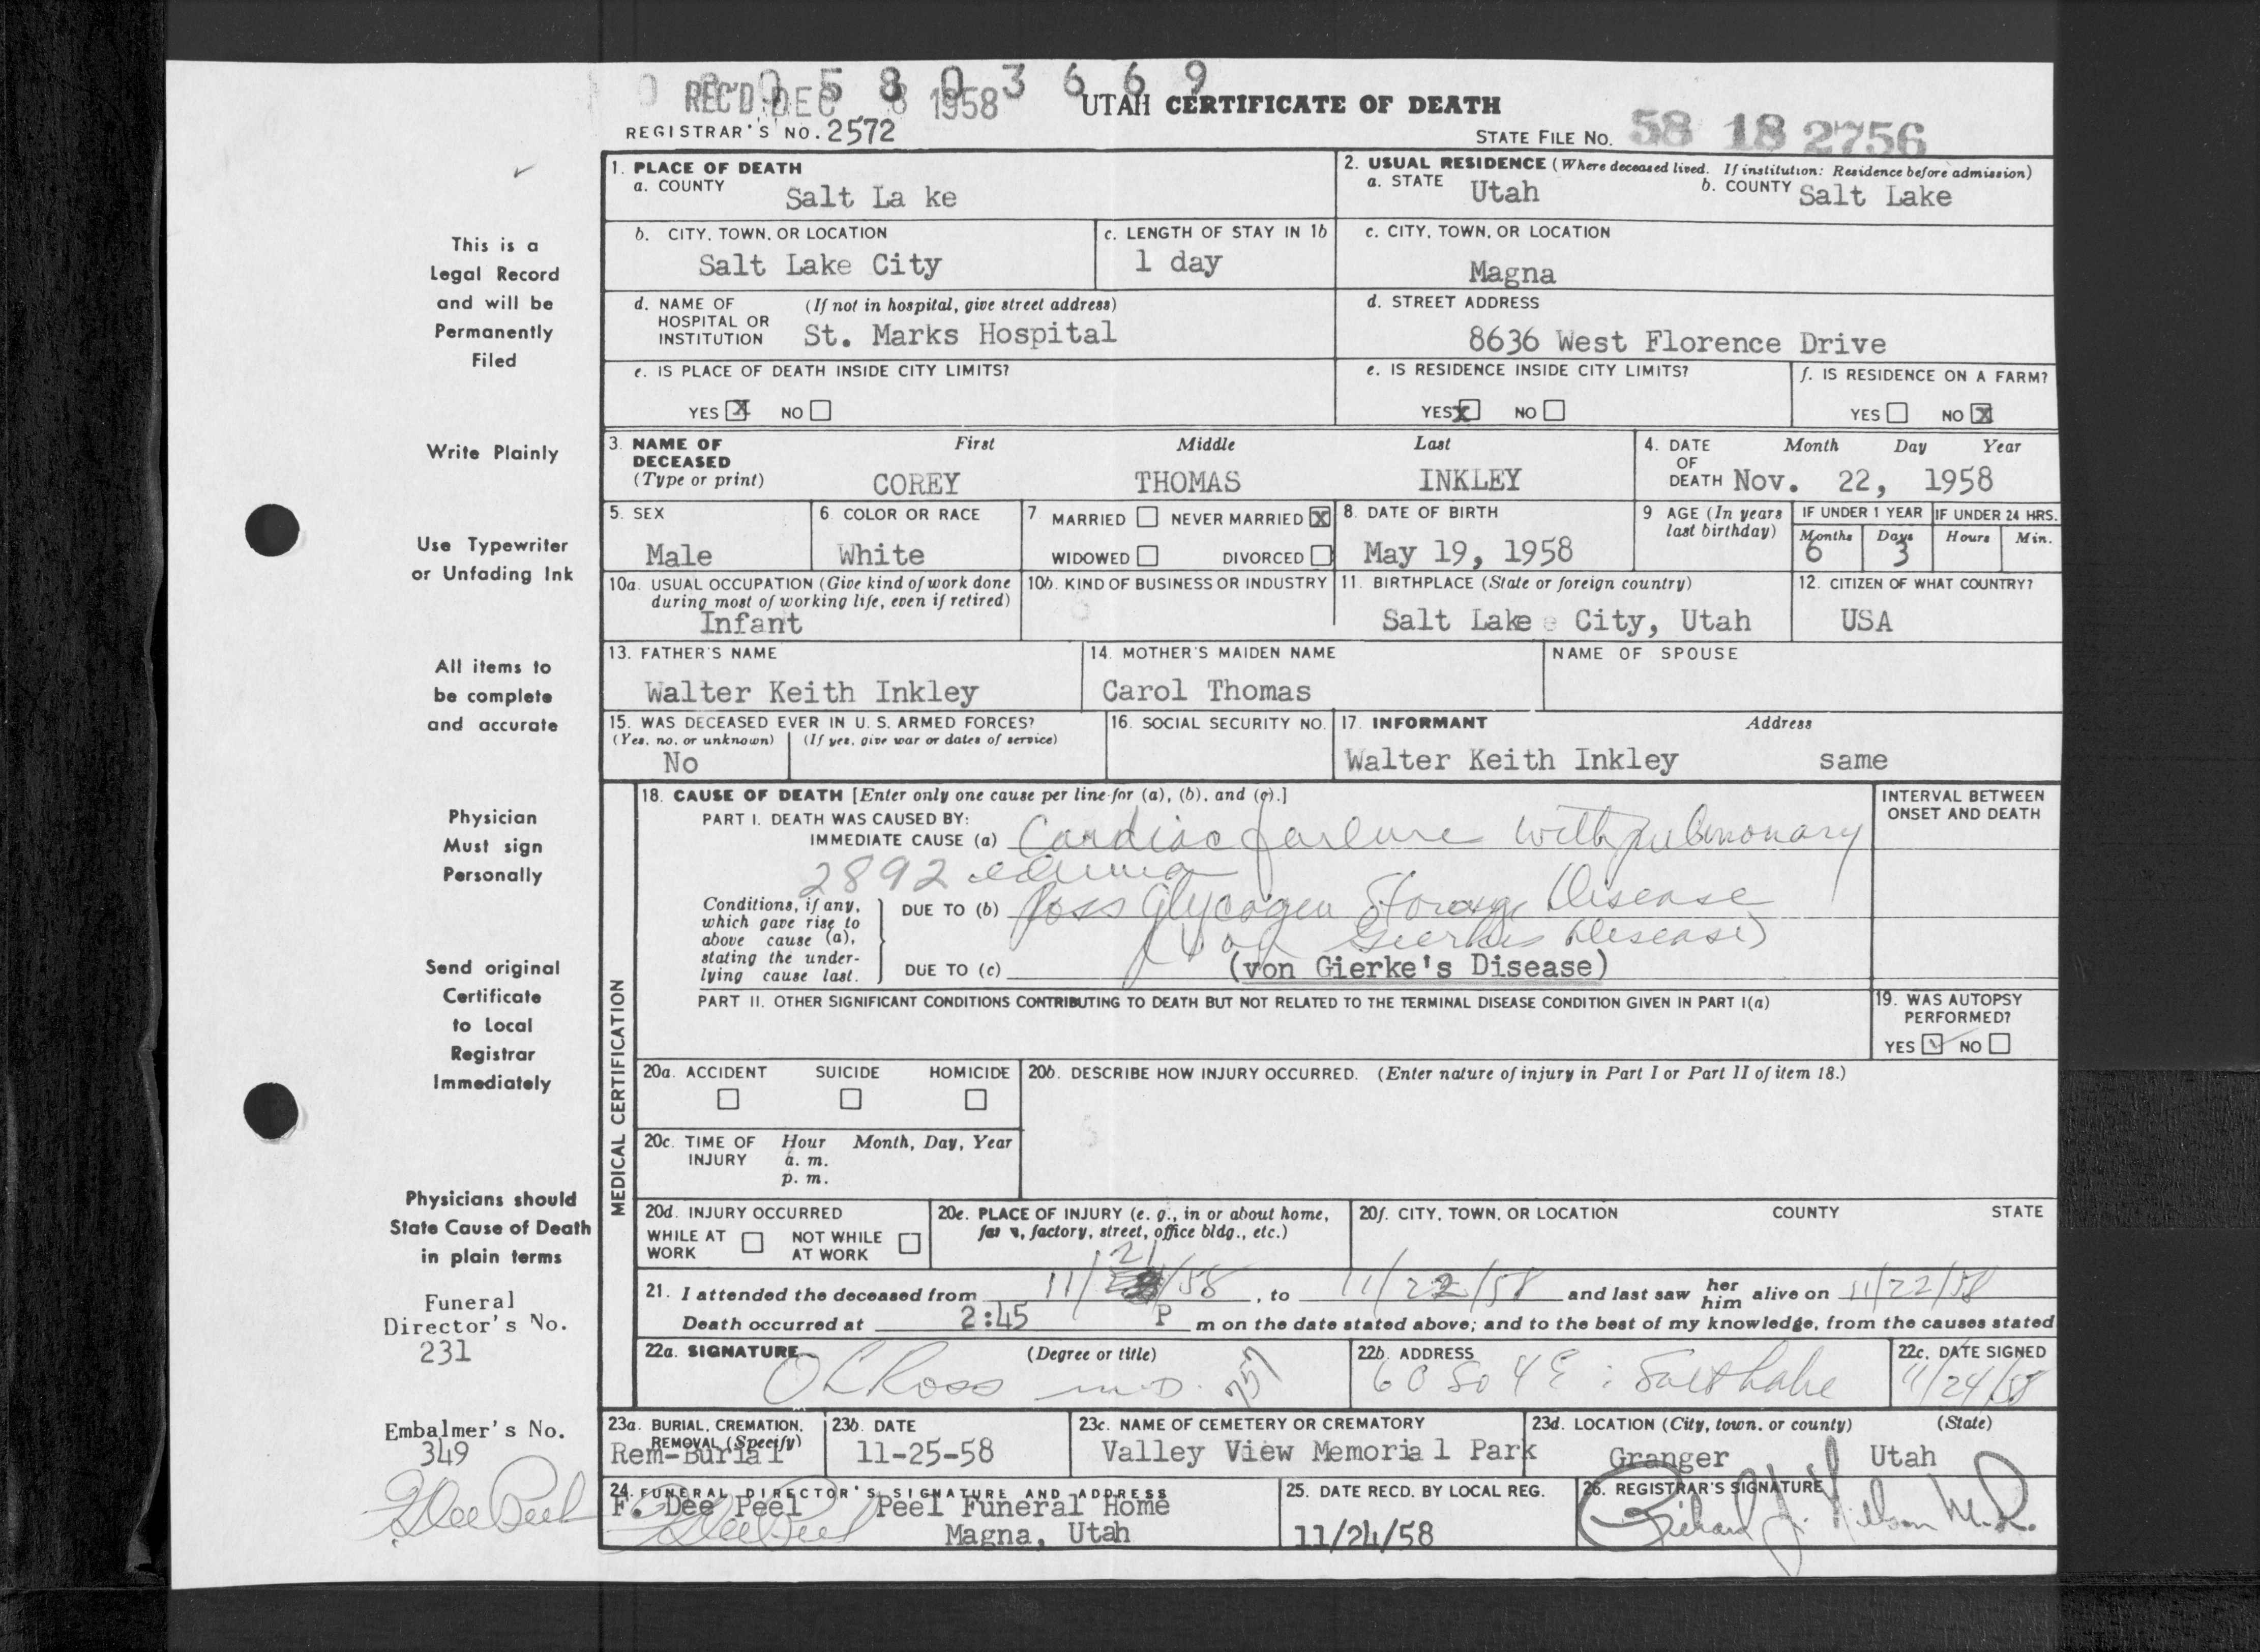 0 2 0 5 8 0 3 6 6 9
REC'D DEC 8 1958
UTAH CERTIFICATE OF DEATH
REGISTRAR'S NO. 2572
STATE FILE NO. 58 18 2756
This is a
Legal Record
and will be
Permanently
Filed
Write Plainly
Use Typewriter
or Unfading Ink
All items to
be complete
and accurate
Physician
Must sign
Personally
Send original
Certificate
to Local
Registrar
Immediately
Physicians should
State Cause of Death
in plain terms
Funeral
Director's No.
231
Embalmer's No.
349
F Dee Peel
1. PLACE OF DEATH
a. COUNTY Salt La ke
2. USUAL RESIDENCE (Where deceased lived. If institution: Residence before admission)
a. STATE Utah b. COUNTY Salt Lake
b. CITY, TOWN, OR LOCATION
Salt Lake City
c. LENGTH OF STAY IN 1b
1 day
c. CITY, TOWN, OR LOCATION
Magna
d. NAME OF HOSPITAL OR INSTITUTION (If not in hospital, give street address)
St. Marks Hospital
d. STREET ADDRESS
8636 West Florence Drive
e. IS PLACE OF DEATH INSIDE CITY LIMITS?
YES X NO
e. IS RESIDENCE INSIDE CITY LIMITS?
YES X NO
f. IS RESIDENCE ON A FARM?
YES NO X
3. NAME OF DECEASED (Type or print)
First Middle Last
COREY THOMAS INKLEY
4. DATE OF DEATH Month Day Year
Nov. 22, 1958
5. SEX
Male
6. COLOR OR RACE
White
7 MARRIED NEVER MARRIED X
WIDOWED DIVORCED
8. DATE OF BIRTH
May 19, 1958
9 AGE (In years last birthday)
IF UNDER 1 YEAR
Months 6 Days 3
IF UNDER 24 HRS.
Hours Min.
10a. USUAL OCCUPATION (Give kind of work done during most of working life, even if retired)
Infant
10b. KIND OF BUSINESS OR INDUSTRY
11. BIRTHPLACE (State or foreign country)
Salt Lake City, Utah
12. CITIZEN OF WHAT COUNTRY?
USA
13. FATHER'S NAME
Walter Keith Inkley
14. MOTHER'S MAIDEN NAME
Carol Thomas
NAME OF SPOUSE
15. WAS DECEASED EVER IN U. S. ARMED FORCES?
(Yes, no, or unknown) (If yes, give war or dates of service)
No
16. SOCIAL SECURITY NO.
17. INFORMANT Address
Walter Keith Inkley same
MEDICAL CERTIFICATION
18. CAUSE OF DEATH [Enter only one cause per line for (a), (b), and (c).]
INTERVAL BETWEEN ONSET AND DEATH
PART I. DEATH WAS CAUSED BY:
IMMEDIATE CAUSE (a) Cardiac failure with pulmonary
2892 edema
Conditions, if any, which gave rise to above cause (a), stating the underlying cause last.
DUE TO (b) poss Glycogen Storage Disease
(von Gierkes Disease)
DUE TO (c) (von Gierke's Disease)
PART II. OTHER SIGNIFICANT CONDITIONS CONTRIBUTING TO DEATH BUT NOT RELATED TO THE TERMINAL DISEASE CONDITION GIVEN IN PART I(a)
19. WAS AUTOPSY PERFORMED?
YES ✓ NO
20a. ACCIDENT SUICIDE HOMICIDE
20b. DESCRIBE HOW INJURY OCCURRED. (Enter nature of injury in Part I or Part II of item 18.)
20c. TIME OF INJURY Hour Month, Day, Year
a. m.
p. m.
20d. INJURY OCCURRED
WHILE AT WORK NOT WHILE AT WORK
20e. PLACE OF INJURY (e. g., in or about home, farm, factory, street, office bldg., etc.)
20f. CITY, TOWN, OR LOCATION COUNTY STATE
21. I attended the deceased from 11/21/58, to 11/22/58 and last saw her him alive on 11/22/58
Death occurred at 2:45 P m on the date stated above; and to the best of my knowledge, from the causes stated
22a. SIGNATURE (Degree or title)
O L Ross M.D. 757
22b. ADDRESS
60 So 4 E : Salt Lake
22c. DATE SIGNED
11/24/58
23a. BURIAL, CREMATION, REMOVAL (Specify)
Rem-Burial
23b. DATE
11-25-58
23c. NAME OF CEMETERY OR CREMATORY
Valley View Memoria l Park
23d. LOCATION (City, town, or county) (State)
Granger Utah
24. FUNERAL DIRECTOR'S SIGNATURE AND ADDRESS
F. Dee Peel Peel Funeral Home
F Dee Peel Magna, Utah
25. DATE RECD. BY LOCAL REG.
11/24/58
26. REGISTRAR'S SIGNATURE
Richard J. Nelson M.D.